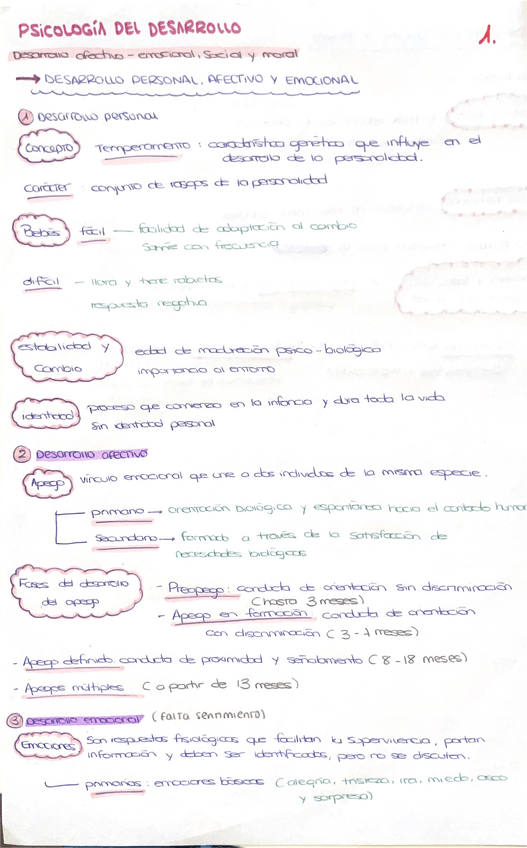 PSICOLOGÍA DEL DESARROLLO
1.
Desarrollo afectivo-emocional, Social y moral
→ DESARROLLO PERSONAL, AFECTIVO Y EMOCIONAL
1 Desarrollo personal
Concepto Temperamento : característica genética que influye en el
desarrollo de la personalidad.
Carácter : conjunto de rasgos de la personalidad
Bebés fácil — facilidad de adaptación al cambio
Sonríe con frecuencia
difícil - llora y tiene rabietas
respuesta negativa
estabilidad y edad de maduración psico-biológica
Cambio importancia al entorno
identidad proceso que comienza en la infancia y dura toda la vida
Sin identidad personal
2 Desarrollo afectivo
Apego vínculo emocional que une a dos individuos de la misma especie.
primario → orientación biológica y espontánea hacia el contacto human
Secundario → formado a través de la satisfacción de
necesidades biológicas
Fases del desarrollo - Preapego: conducta de orientación sin discriminación
del apego (hasta 3 meses)
- Apego en formación conducta de orientación
con discriminación (3-7 meses)
- Apego definido conducta de proximidad y señalamiento (8-18 meses)
- Apegos múltiples (a partir de 13 meses)
3 Desarrollo emocional (falta sentimiento)
Emociones Son respuestas fisiológicas que facilitan tu supervivencia, portan
información y deben ser identificadas, pero no se discuten.
primarias : emociones básicas (alegría, tristeza, ira, miedo, asco
y sorpresa)